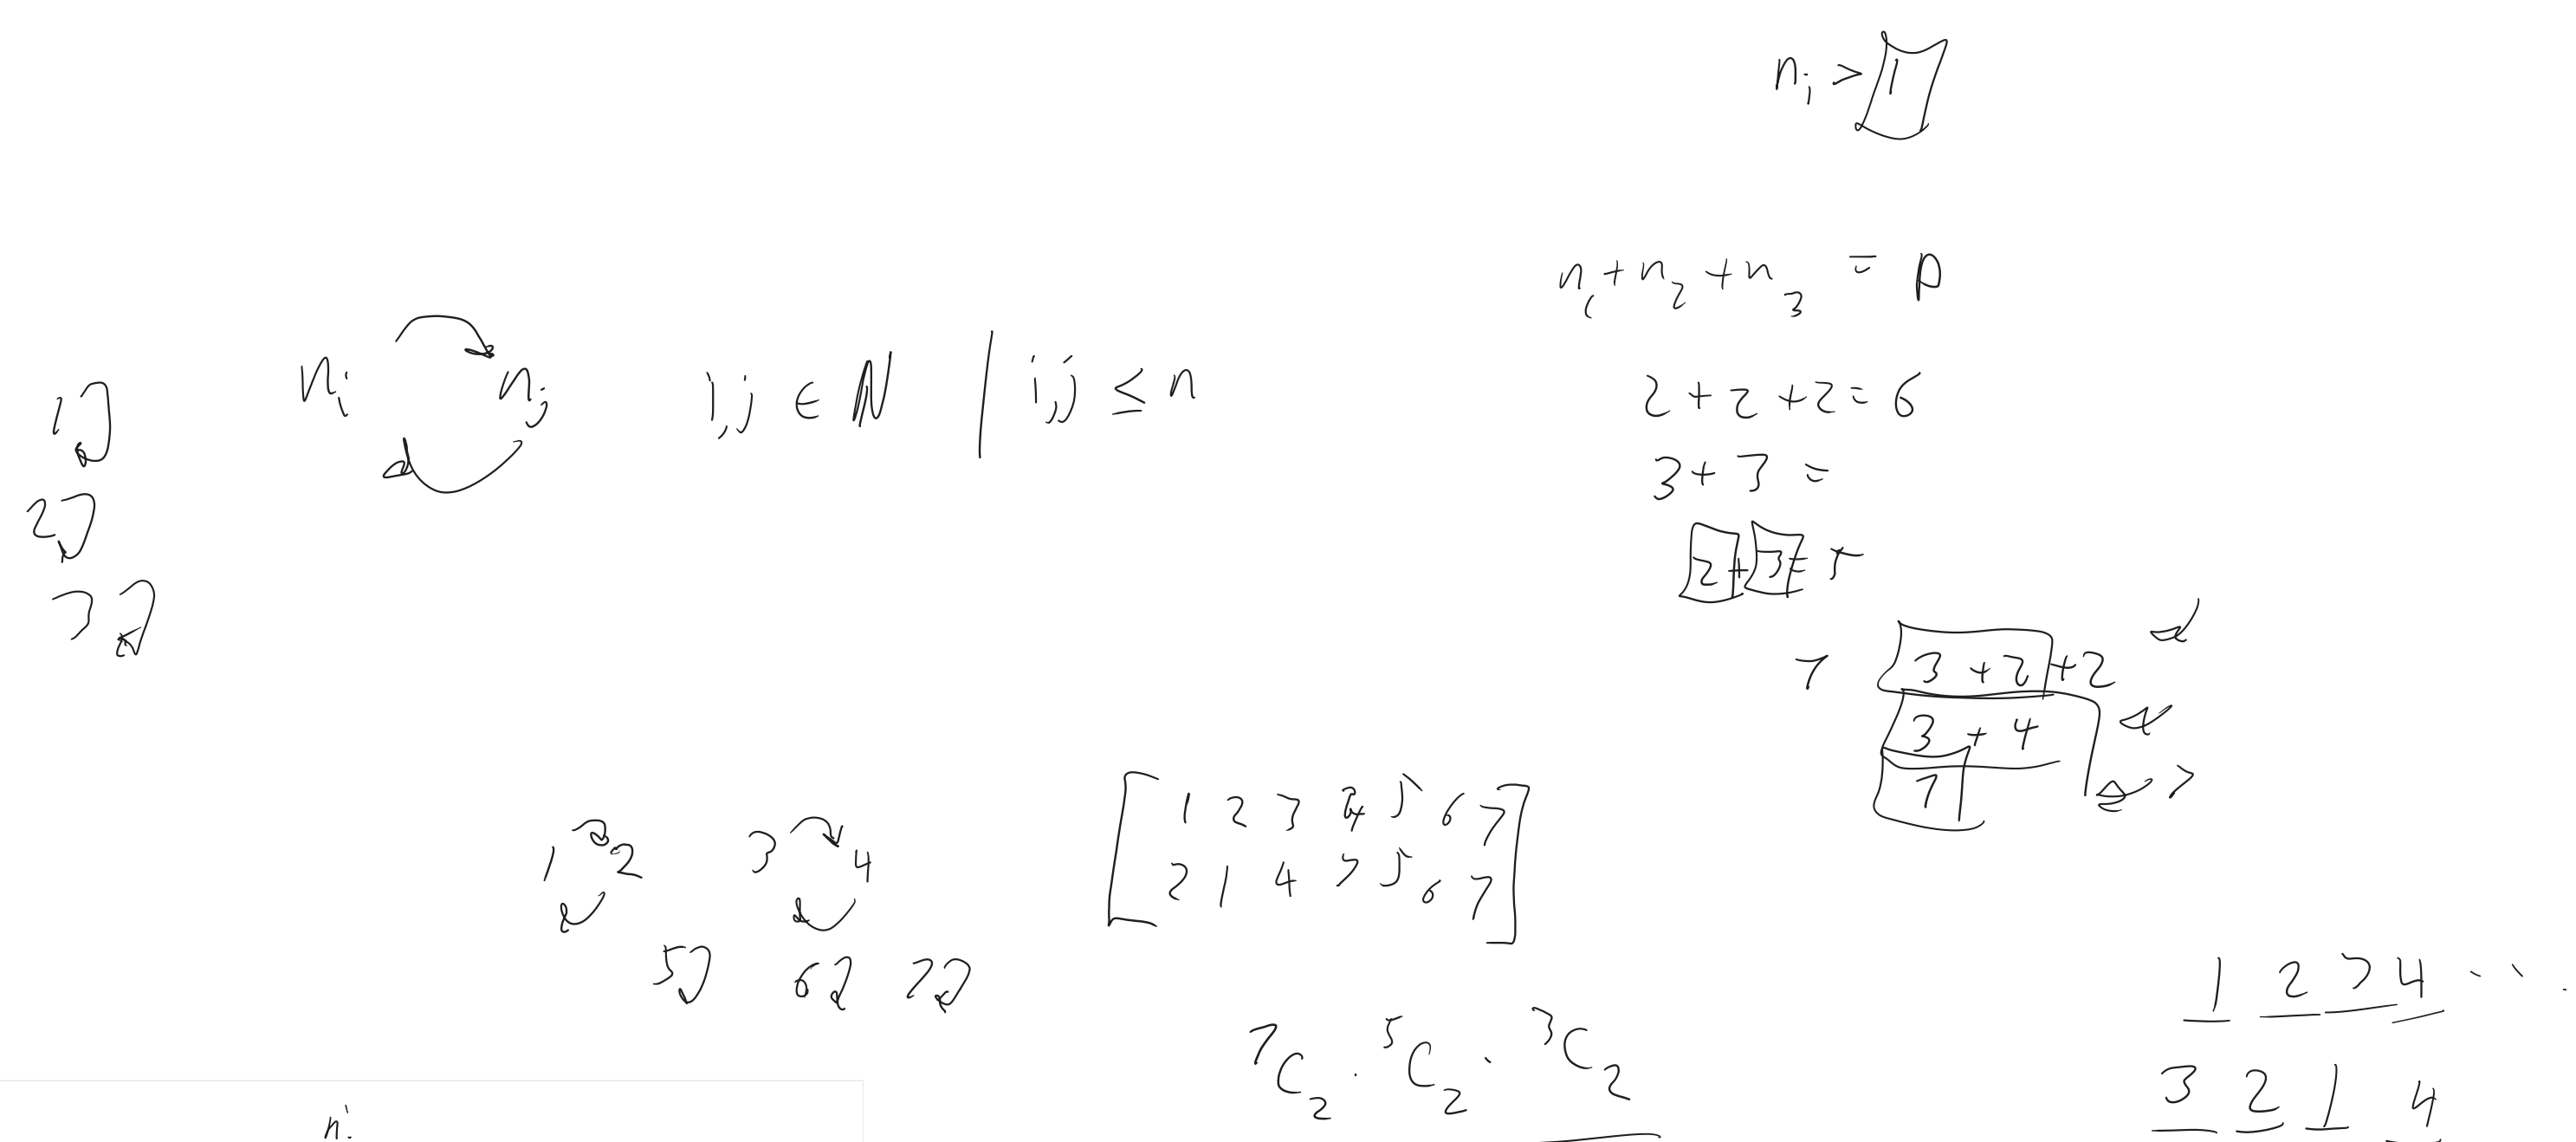 n_i > 1
n_1 + n_2 + n_3 = p
n_i n_j i, j ∈ N | i, j ≤ n
1
2
3
2 + 2 + 2 = 6
3 + 3 =
2 + 3 = 5
7 3 + 2 + 2
3 + 4
7
1 2 3 4
5 6 7
1 2 3 4 5 6 7
2 1 4 3 5 6 7
^7C_2 . ^5C_2 . ^3C_2
1 2 3 4 ...
3 2 1 4
n_i